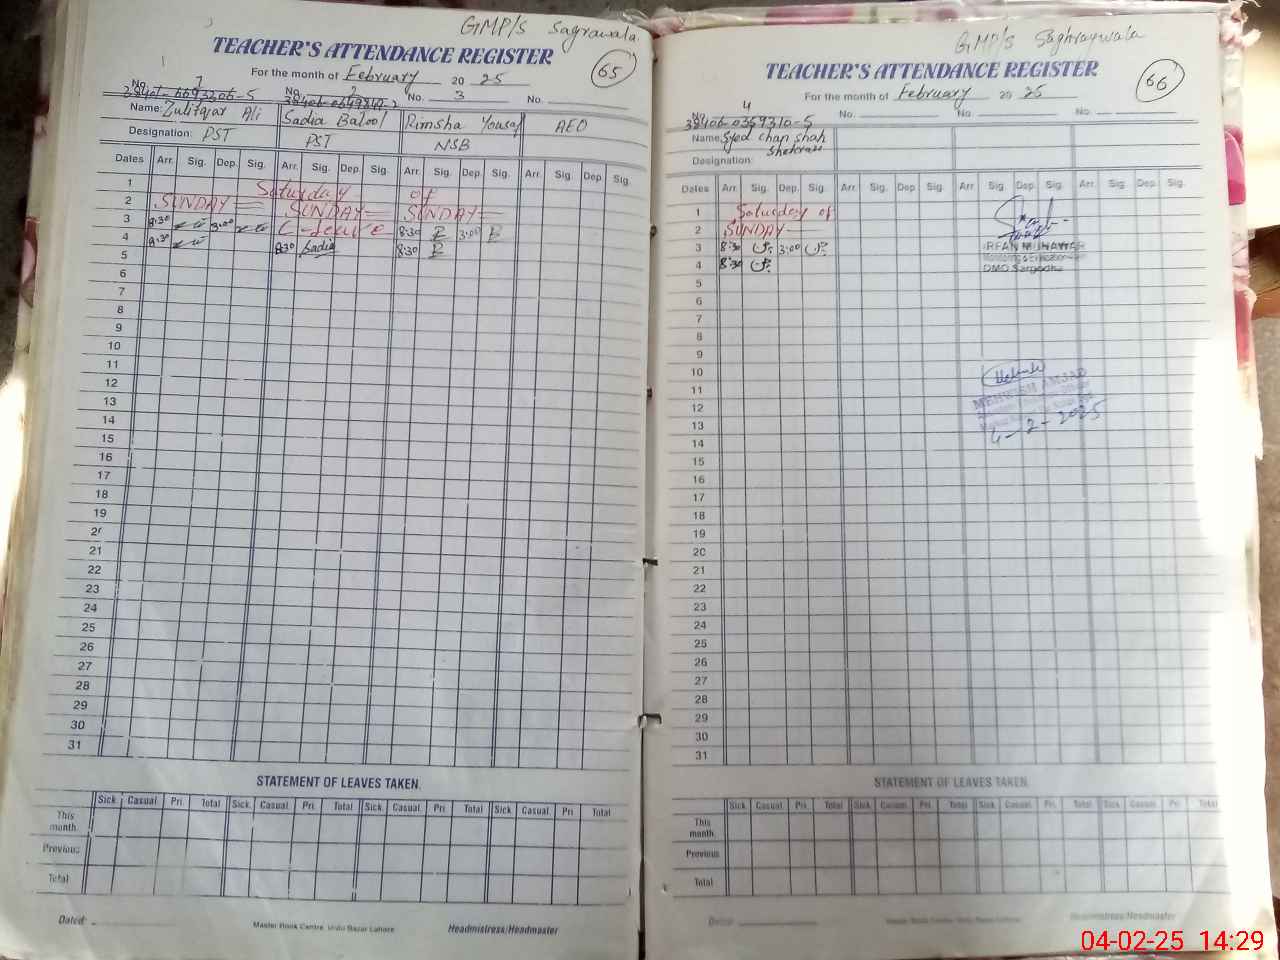 GMP/S Sagrawala
TEACHER'S ATTENDANCE REGISTER
For the month of February 2025
65
No. 1 No. 2 No. 3 No.
Name: Zulifqar Ali Sadia Batool Rimsha Yousaf AEO
Designation: PST PST NSB
Dates Arr. Sig. Dep. Sig. Arr. Sig. Dep. Sig. Arr. Sig. Dep. Sig. Arr. Sig. Dep. Sig.
1 Saturday of
2 SUNDAY SUNDAY SUNDAY
3 8:30 3:00 C-leave 8:30 R 3:00 R
4 8:30 8:30 Sadia 8:30 R
5
6
7
8
9
10
11
12
13
14
15
16
17
18
19
20
21
22
23
24
25
26
27
28
29
30
31
STATEMENT OF LEAVES TAKEN.
Sick Casual Pri. Total Sick. Casual Pri. Total Sick Casual Pri Total Sick Casual Pri Total
This month.
Previous
Total
Dated:
Master Book Centre, Urdu Bazar Lahore
Headmistress/Headmaster
GMP/S Saghraywala
TEACHER'S ATTENDANCE REGISTER
For the month of February 2025
66
4
No. 38406-0359310-5 No. No. No.
Name: Syed chan shah
Designation:
Dates Arr. Sig. Dep. Sig. Arr. Sig. Dep. Sig. Arr. Sig. Dep. Sig. Arr. Sig. Dep. Sig.
1 Saturday of
2 SUNDAY
3 8:30 3:00
4 8:30
IRFAN MUNAWAR
DMO Sargodha
5
6
7
8
9
10
11
MEHWISH AMJAD
12
13
4-2-2025
14
15
16
17
18
19
20
21
22
23
24
25
26
27
28
29
30
31
STATEMENT OF LEAVES TAKEN
Sick Casual Pri. Total Sick Casual Pri. Total Sick Casual Pri. Total Sick Casual Pri. Total
This month.
Previous
Total
Dated:
Headmistress/Headmaster
04-02-25 14:29